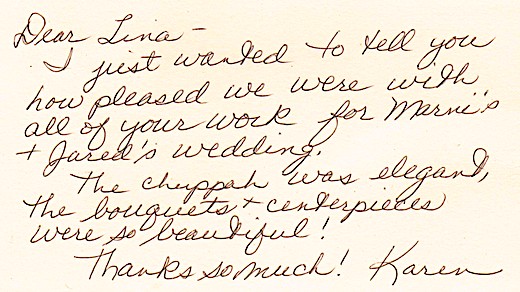 Dear Lina -
I just wanted to tell you
how pleased we were with
all of your work for Marni's
+ Jared's wedding.
The chuppah was elegant,
the bouquets + centerpieces
were so beautiful!
Thanks so much! Karen